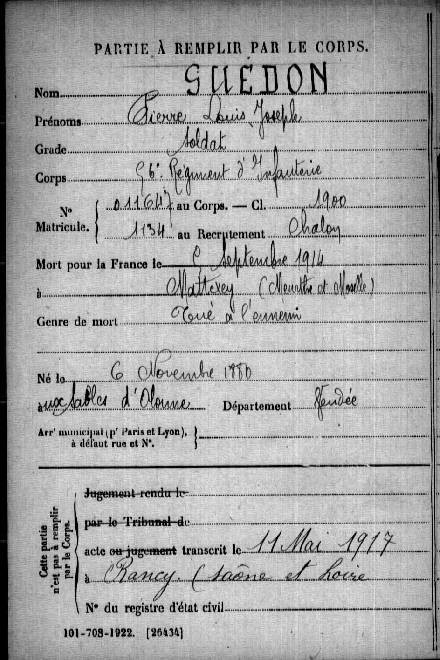 PARTIE À REMPLIR PAR LE CORPS.
Nom GUÉDON
Prénoms Pierre Louis Joseph
Grade Soldat
Corps 56e Régiment d'Infanterie
N° Matricule. { 011647 au Corps. — Cl. 1900
1134 au Recrutement Chalon
Mort pour la France le 6 Septembre 1914
à Mattexey (Meurthe et Moselle)
Genre de mort Tué à l'ennemi
Né le 6 Novembre 1880
aux Sables d'Olonne Département Vendée
Arr' municipal (p' Paris et Lyon), à défaut rue et N°. {
Cette partie n'est pas à remplir par le Corps. {
Jugement rendu le
par le Tribunal de
acte ou jugement transcrit le 11 Mai 1917
à Rancy (Saône et Loire
N° du registre d'état civil
101-708-1922. [26434]